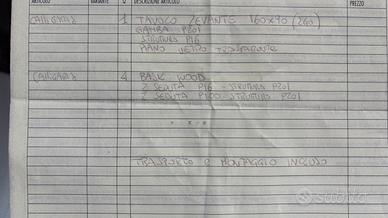 ARTICOLO VARIANTE Q DESCRIZIONE ARTICOLO PREZZO
CALLIGARIS 1 TAVOLO LEVANTE 160x90 (260)
GAMBA P201
STRUTTURA P16
PIANO VETRO TRASPARENTE
CALLIGARIS 4 BASIC WOOD
2 SEDUTA P16 - STRUTTURA P201
2 SEDUTA P100 STRUTTURA P201
TRASPORTO E MONTAGGIO INCLUSO
subito